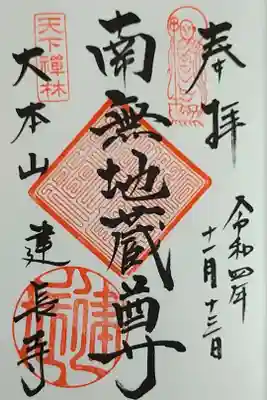 奉拝
令和四年
十一月十三日
南無地蔵尊
天下禅林
大本山建長寺